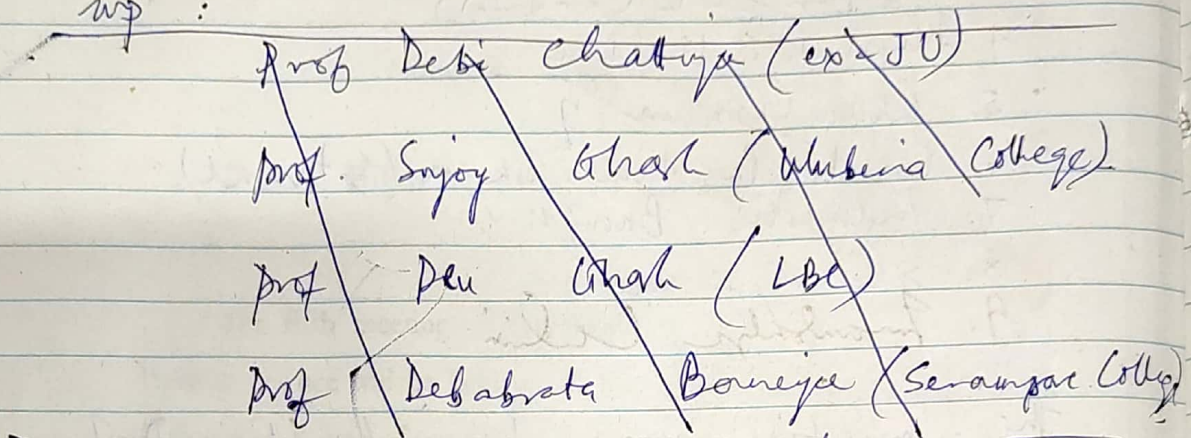 WP :
Prof Debi Chattujee (ex-JU)
Prof. Sujoy Ghosh (Uluberia College)
Prof Deu Ghosh (LBC)
Prof Debabrata Banerjee (Serampore College)